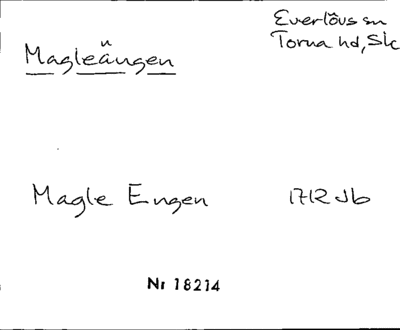 Everlövs sn
Torna hd, Sk
Magleängen
Magle Engen 1712 Jb
Nr 18214